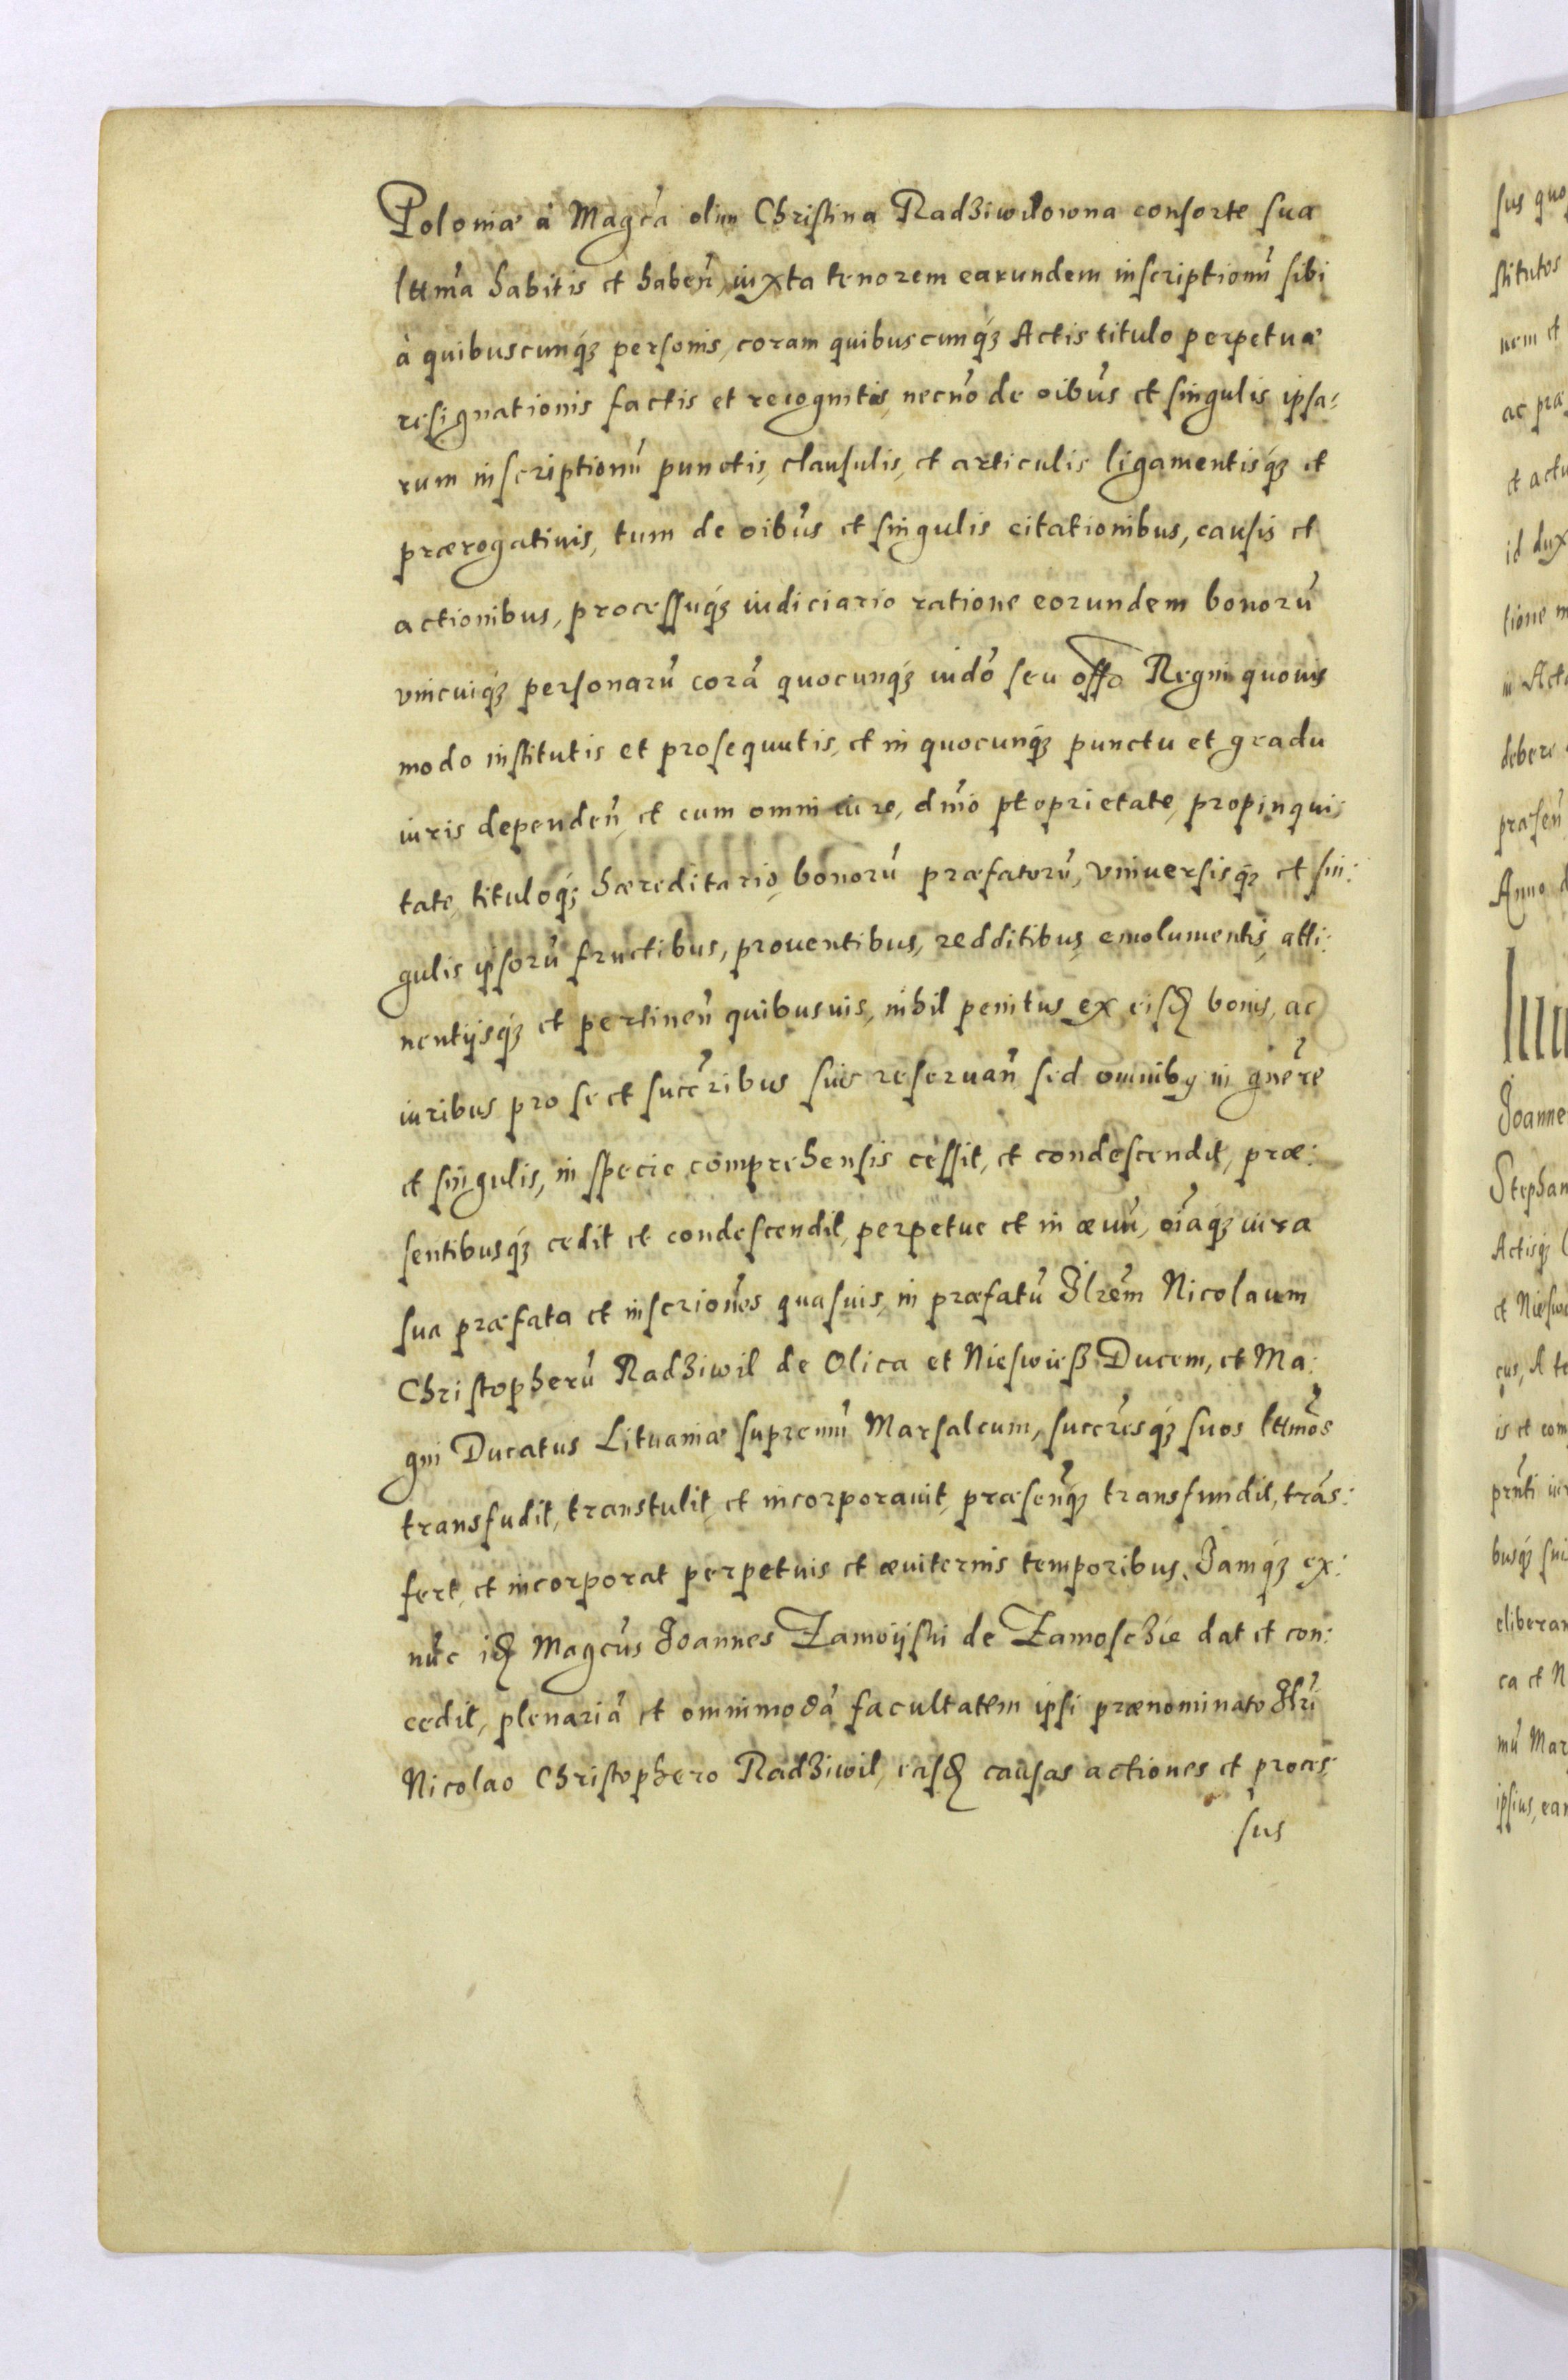 Poloniæ à Magca olim Christina Radziwilowna consorte sua
lttma habitis et haben, iuxta tenorem earundem inscriptionũ sibi
à quibuscunq; personis, coram quibuscunq; Actis titulo perpetuæ
resignationis factis et recognitis, necnõ de oibus et singulis ipsa=
rum inscriptionũ punctis, clausulis, et articulis ligamentisq; et
prærogativis, tum de oibus et singulis citationibus, causis et
actionibus, processuq; iudiciario ratione eorundem bonorũ
vnicuiq; personarũ corã quocunq; iudo seu offo Regni quovis
modo institutis et prosequutis, et in quocunq; punctu et gradu
iuris dependen, et cum omni iure, dmio proprietate, propinqui:
tate, tituloq; hæreditario, bonorũ præfatorũ, vniuersisq; et sin:
gulis ipsorũ fructibus, prouentibus, redditibus, emolumentis, atti:
nentijsq; et pertinen quibusuis, nihil penitus ex eisd bonis, ac
iuribus pro se et succribus suis reseruan sed omnibq in gnere
et singulis, in specie comprehensis cessit, et condescendit, præ:
sentibusq; cedit et condescendit, perpetue et in æuũ, oiaq; iura
sua præfata et inscriones quasuis, in præfatũ Illrem Nicolaum
Christopherũ Radziwil de Olica et Nieswieß Ducem, et Ma:
gni Ducatus Lituaniæ supremũ Marsalcum, succresq; suos lttmos
transfudit, transtulit, et incorporauit, præsenq; transfundit, trãs:
fert, et incorporat perpetuis et æuiternis temporibus. Iamq; ex:
nũc id Magcus Joannes Zamoijski de Zamoschie dat et con:
cedit, plenariã et omnimodã facultatem ipsi prænominato Illri
Nicolao Christophero Radziwil, easd causas actiones et proces:
sus